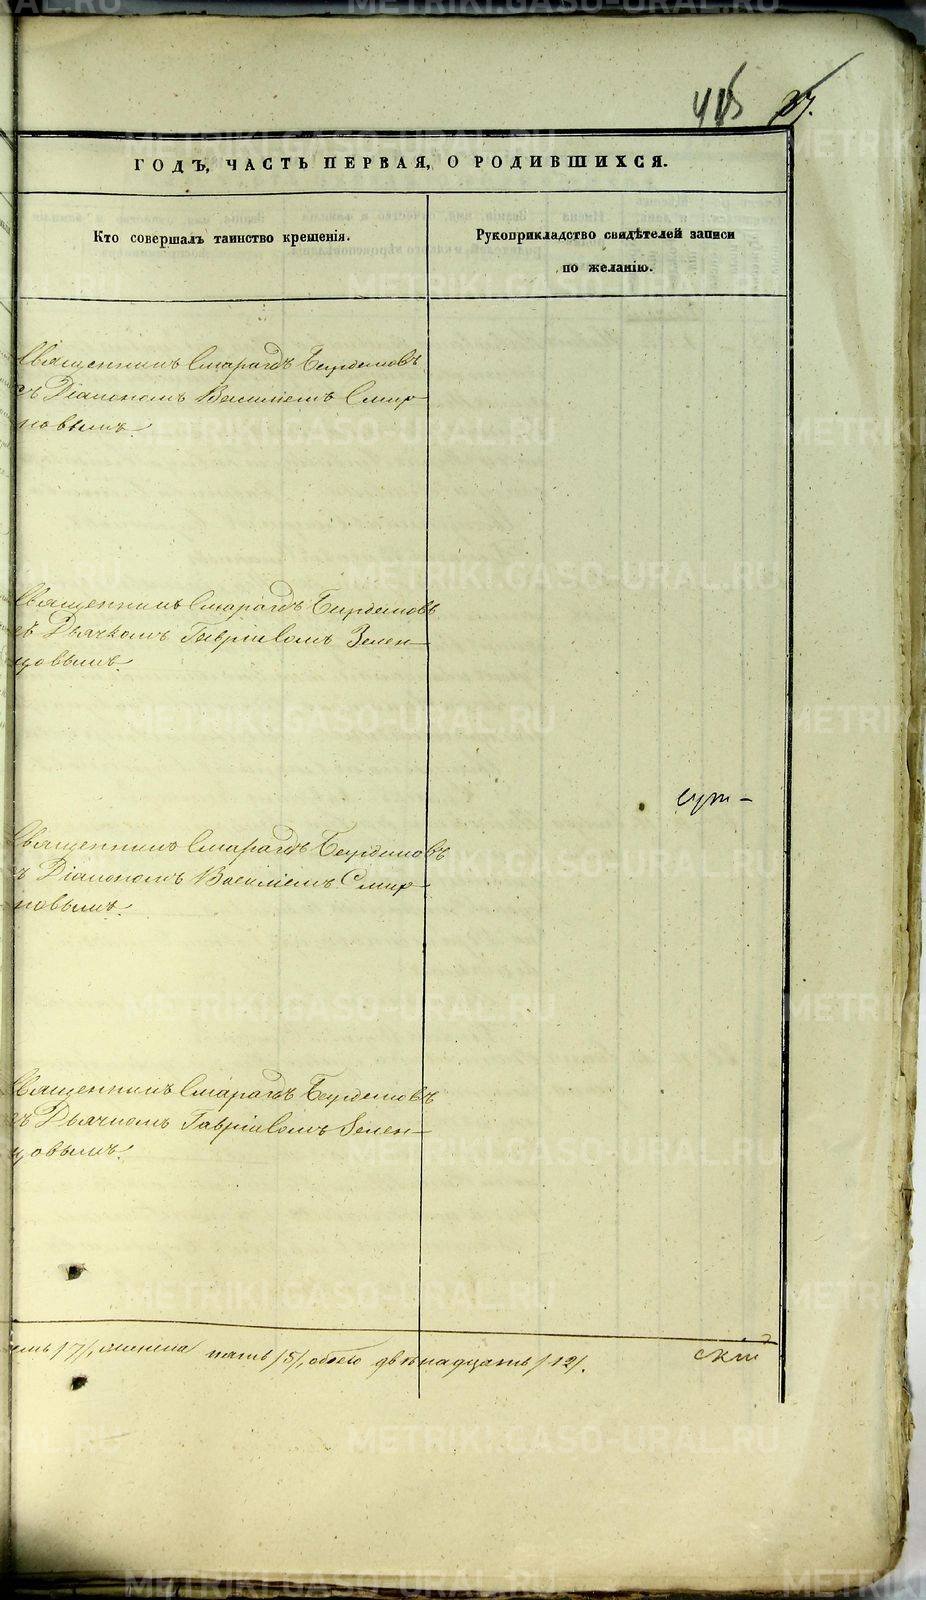 415 37.
ГОДЪ, ЧАСТЬ ПЕРВАЯ, О РОДИВШИХСЯ.
Кто совершалъ таинство крещенія.
Рукоприкладство свидѣтелей записи
по желанію.
Священникъ Смарагдъ Бирюковъ
съ Діакономъ Василіемъ Смир-
новымъ.
Священникъ Смарагдъ
съ Дьячкомъ Гавріиломъ Зелен-
цовымъ.
Священникъ Смарагдъ
съ Діакономъ Василіемъ Смир-
новымъ.
Священникъ Смарагдъ
съ Дьячкомъ Гавріиломъ Зелен-
цовымъ.
/7/, женска пять /5/, обоего двѣнадцать /12/.
скій
METRIKI.GASO-URAL.RU